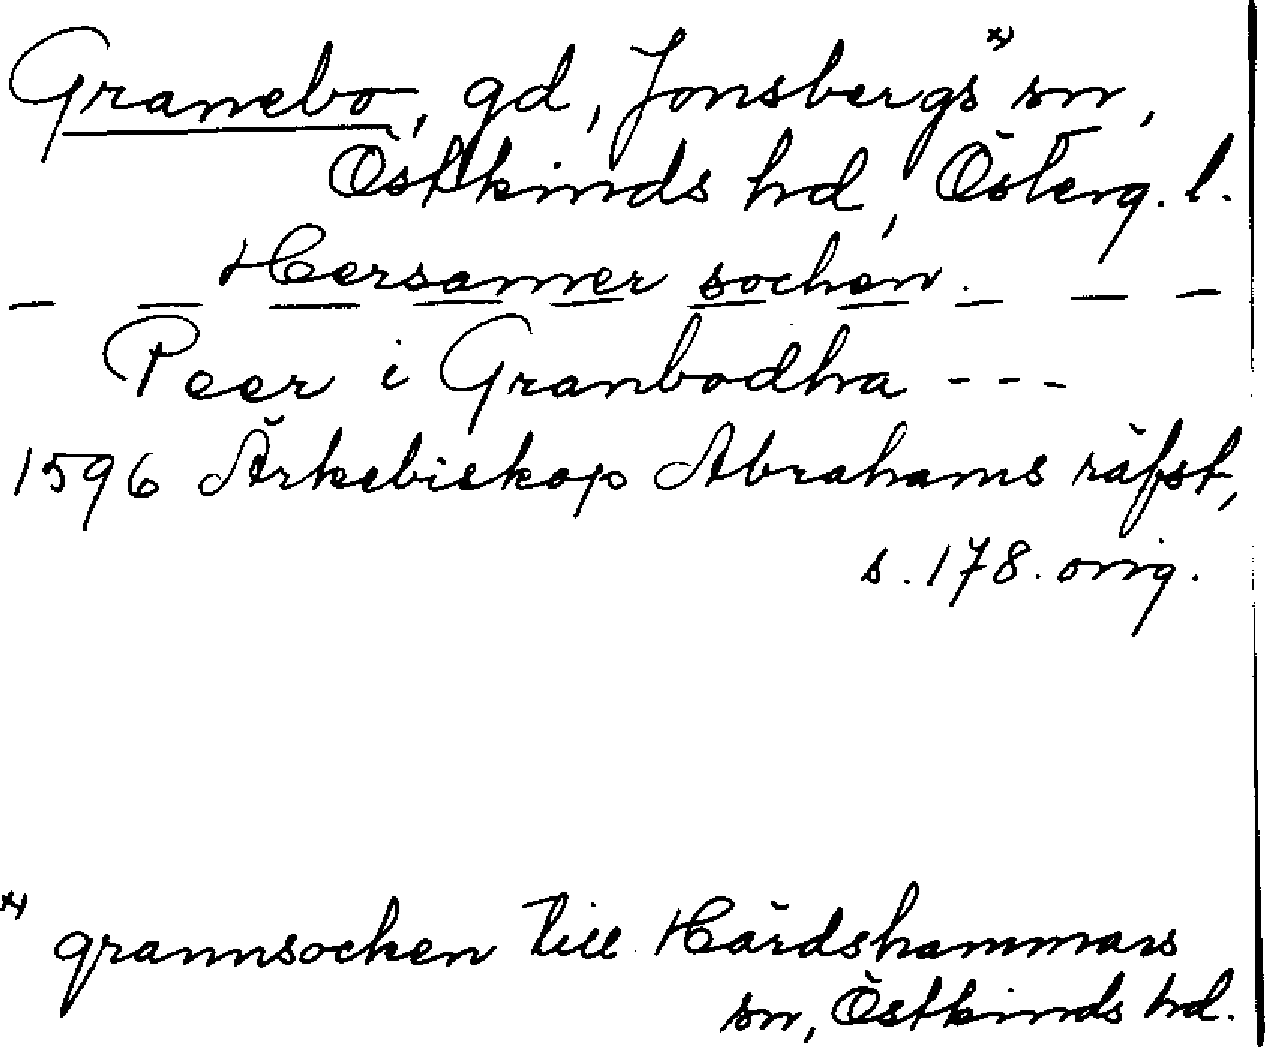 Granebo, gd, Jonsbergs x) sn,
Östkinds hd, Österg. l.
- - Hersamer sochen. - - -
Peer i Granbodha - - -
1596 Ärkebiskop Abrahams räfst,
s. 178. orig.
x) grannsocken till Härdshammars
sn, Östkinds hd.